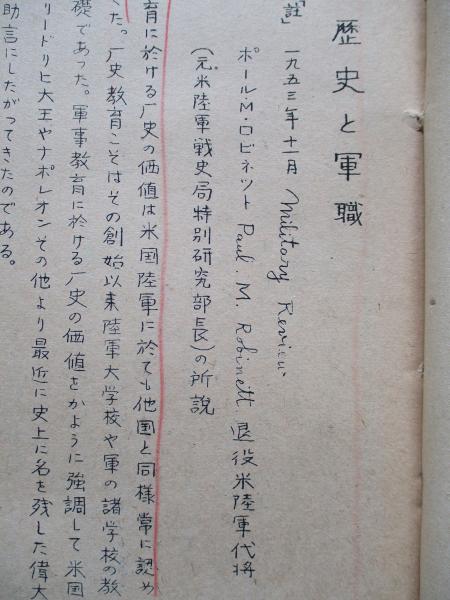 歴史と軍職
「註」 一九五三年十一月 Military Review
ポールM・ロビネット Paul. M. Robinett 退役米陸軍代将
(元米陸軍戦史局特別研究部長)の所説
育に於ける厂史の価値は米国陸軍に於ても他国と同様常に認め
た。厂史教育こそはその創始以来陸軍大学校や軍の諸学校の教
礎であった。軍事教育に於ける厂史の価値をかように強調して米国
リードリヒ大王やナポレオンその他より最近に史上に名を残した偉大
助言にしたがってきたのである。